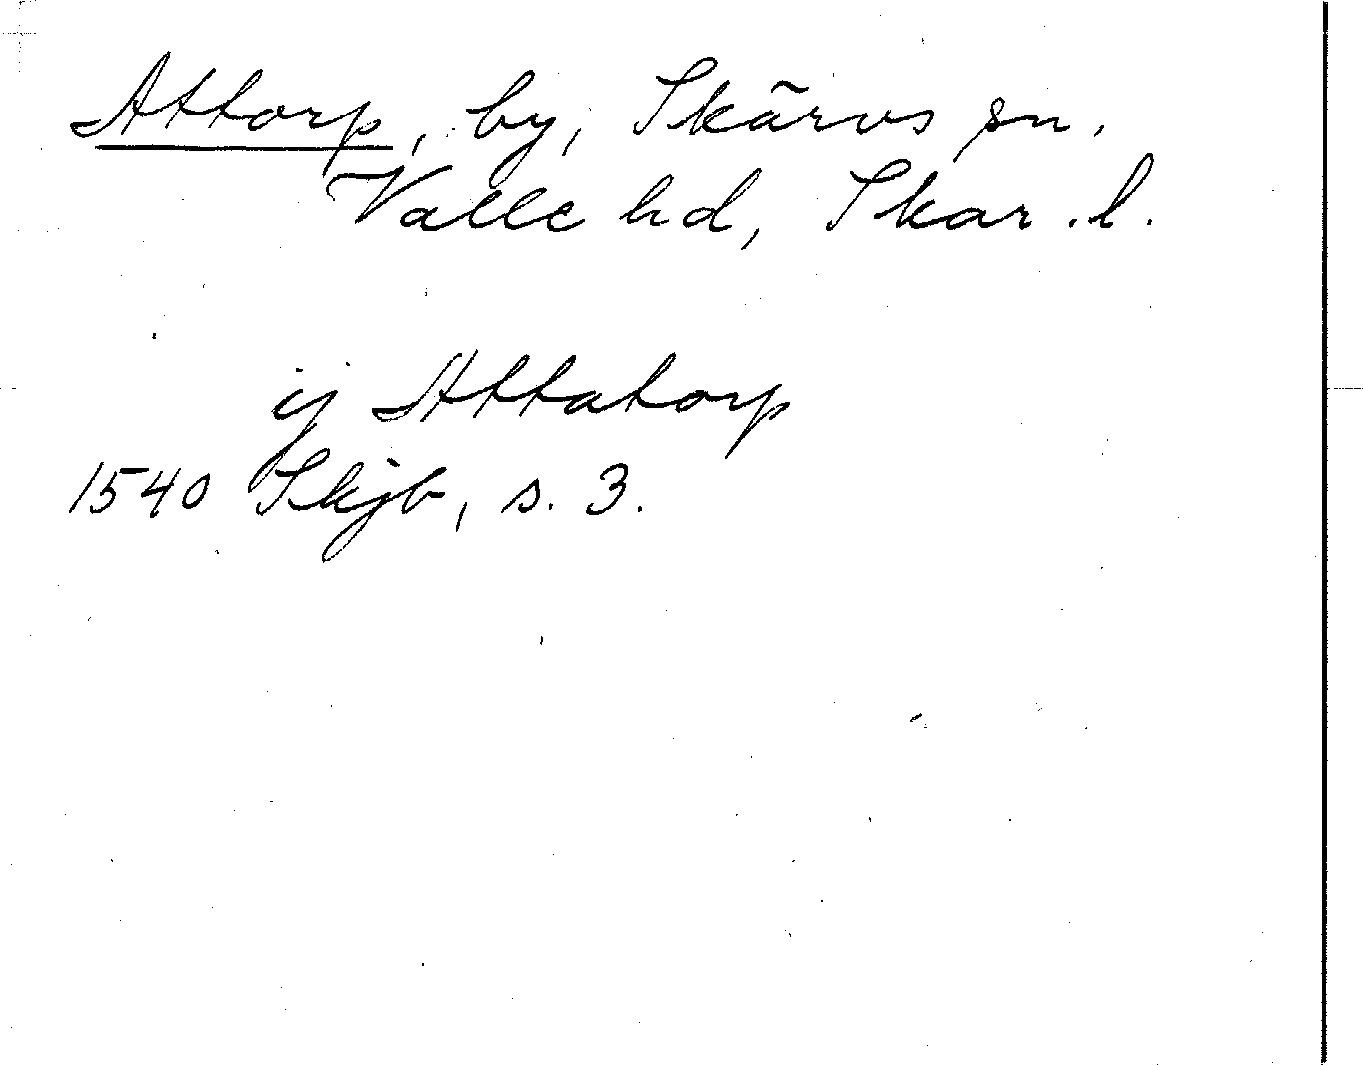 Attorp, by, Skärvs sn.
Valle hd, Skar. l.
ij Attatorp
1540 Skjb, s. 3.